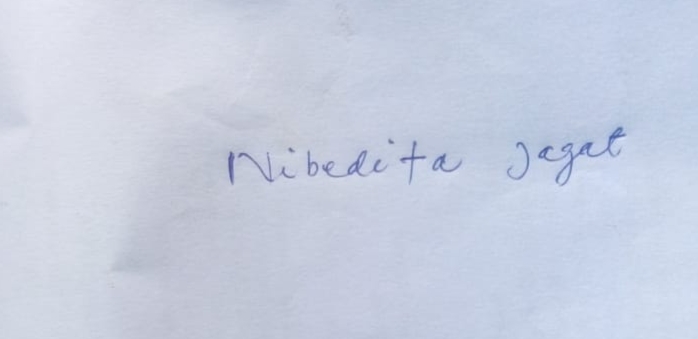 Nibedita Jagat